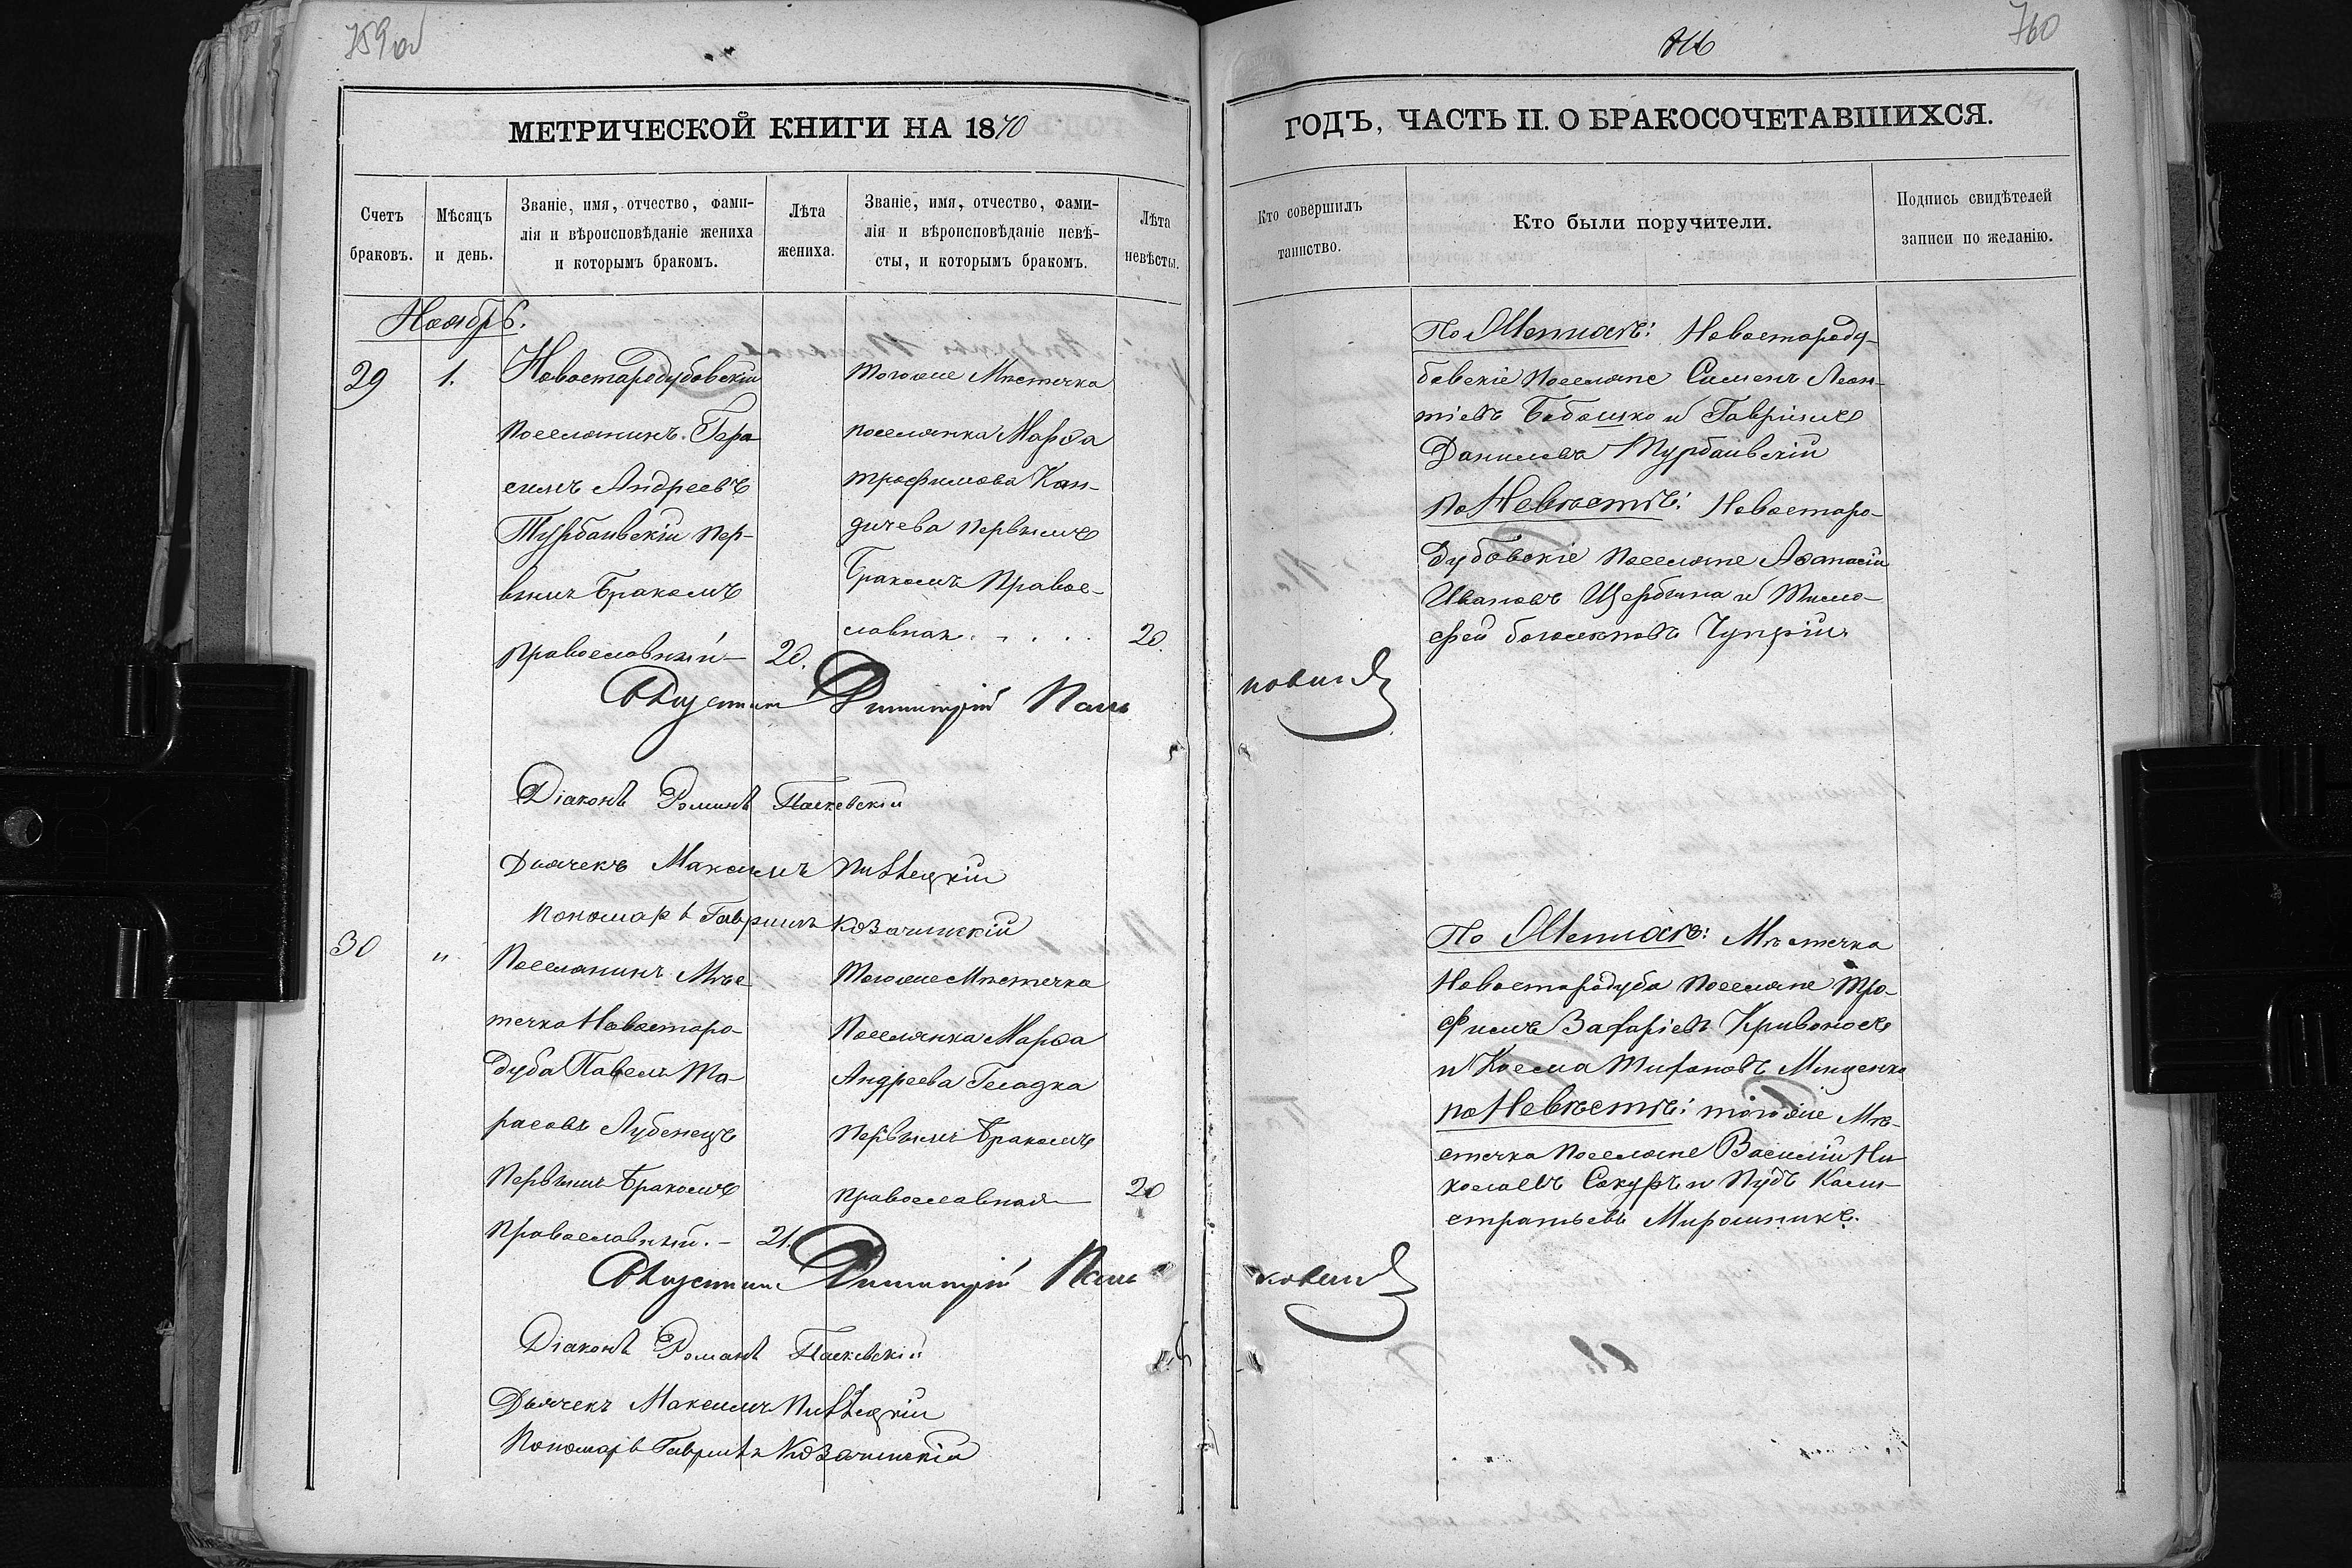 759об
МЕТРИЧЕСКОЙ КНИГИ НА 1870
Счетъ браковъ.
Мѣсяцъ и день.
Званіе, имя, отчество, фами-
лія и вѣроисповѣданіе жениха
и которымъ бракомъ.
Лѣта жениха.
Званіе, имя, отчество, фами-
лія и вѣроисповѣданіе невѣ-
сты, и которымъ бракомъ.
Лѣта невѣсты.
Ноябрь.
29
1.
Новостародубовскій
поселянинъ Гера
симъ Андреевъ
Турбаивскій пер-
вымъ бракомъ
православный 20.
тогоже Мѣстечка
поселянка Марѳа
трофимова Кан-
дичева первымъ
бракомъ Правос-
лавная 20.
Димитрій
Діаконъ Романъ Пасковскій
Дьячекъ Максимъ
Пономарь Гавріилъ Козачинскій
30
"
Поселянинъ Мѣс
течка Новостаро-
дуба Павелъ Та-
расовъ Лубенецъ
первымъ бракомъ
православный. 21.
тогоже Мѣстечка
Поселянка Марѳа
Андреева Гладка
первымъ бракомъ
православная 20
Димитрій
Діаконъ Романъ Пасковскій
Дьячекъ Максимъ
Пономарь Гавріилъ Козачинскій
760
ГОДЪ, ЧАСТЬ II. О БРАКОСОЧЕТАВШИХСЯ.
Кто совершилъ таинство.
Кто были поручители.
Подпись свидѣтелей
записи по желанію.
По Женихѣ: Новостароду-
бовскіе поселяне Симеонъ Леон-
тіевъ Бабашко и Гавріилъ
Даниловъ Турбаивскій
по Невѣстѣ: Новостаро-
дубовскіе поселяне Аѳанасій
Ивановъ Щербина и Тимо-
фей Чупрій
По Женихѣ: Мѣстечка
Новостародуба поселяне Тро-
фимъ Захаріевъ Кривоносъ
и Косма Тихоновъ
по Невѣстѣ: тогоже Мѣ-
стечка поселяне Василій Ни-
колаевъ Сакуръ и Пудъ Кали-
стратьевъ Мирошникъ.